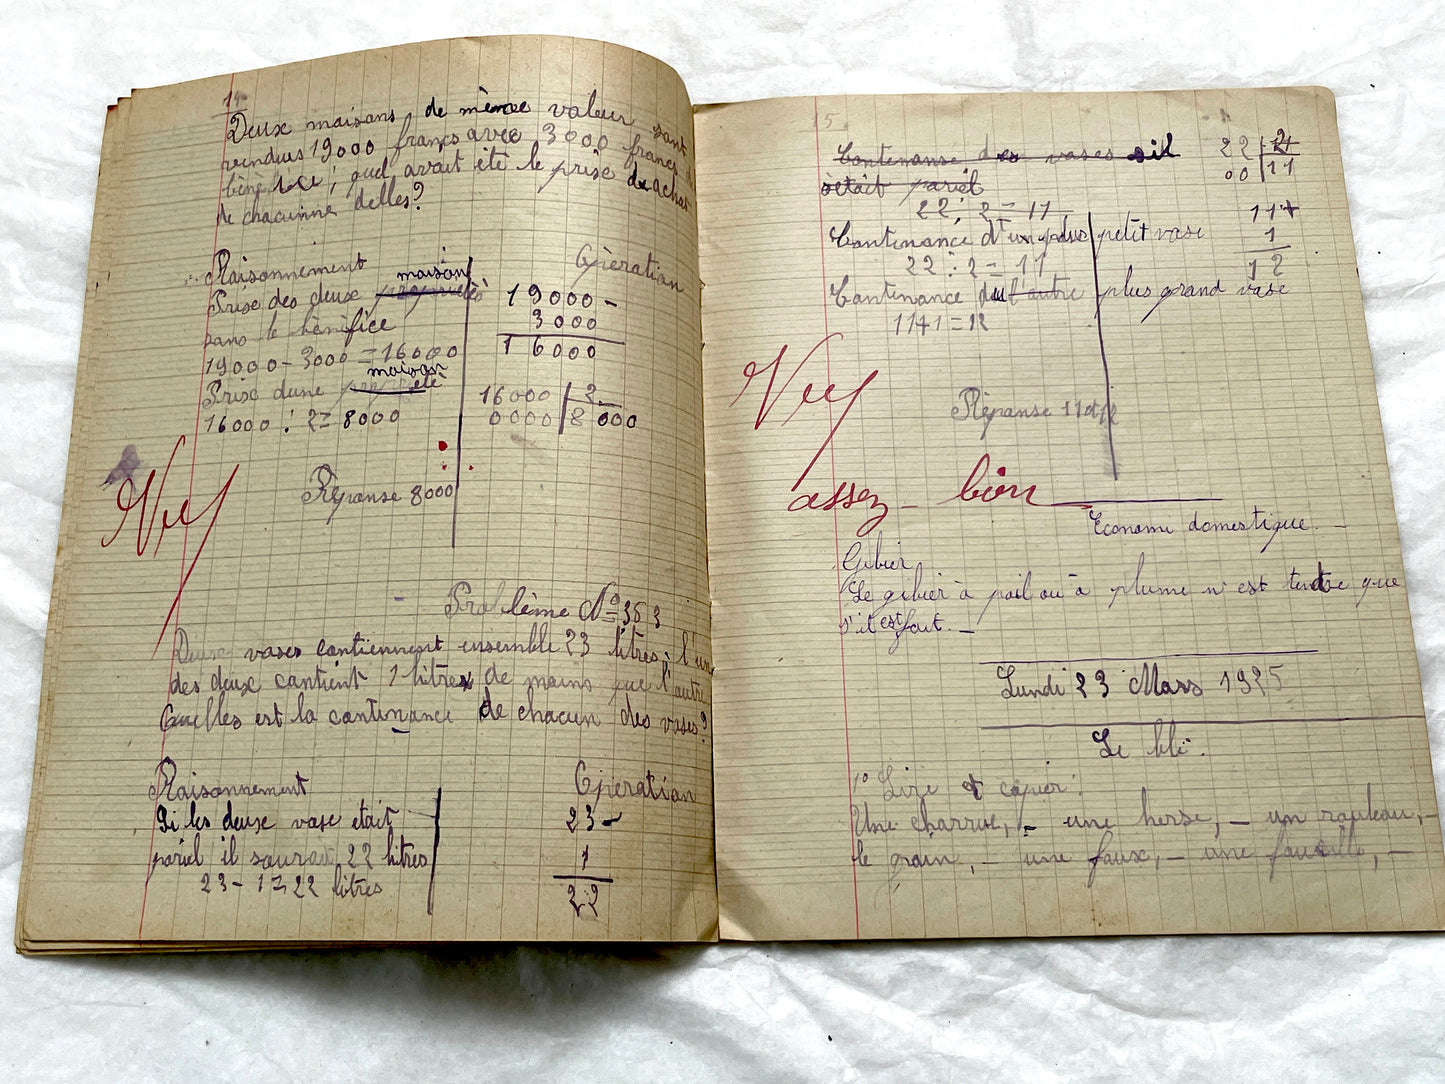 14
Deux maisons de même valeur sont
vendues 19000 francs avec 3000 francs
bénéfice; quel avait été le prise dachat
de chacunne delles?
Raisonnement
Opération
maison
Prise des deux propriétés
sans le bénifice
19000 - 3000 = 16000
maison
Prise dune propriété
16000 : 2 = 8000
19000 -
3000
16000
16000 | 2
0000 | 8000
Vu
Réponse 8000
Problème No 353
Deux vases contiennent ensemble 23 litres; l'un
des deux contient 1 litres de moins que l'autre
Quelles est la contenance de chacun des vases?
Raisonnement
Opération
Si les deux vase était
pariel il saurait 22 litres
23 - 1 = 22 litres
23 -
1
22
15
Contenanse des vases sil
était pariel
22 : 2 = 11
22 | 2
00 | 11
Contenance d'un plus petit vase
22 : 2 = 11
11+
1
12
Contenance de l'autre plus grand vase
11+1 = 12
Vu
Réponse 11 et 12
assez - bien
Economi domestique. -
Gibier
Le gibier à poil ou à plume n'est tendre que
s'il est fait. -
Lundi 23 Mars 1925
Le blé.
1° Lire et copier:
Une charrue, - une herse, - un rouleau, -
le grain, - une faux, - une faucille, -